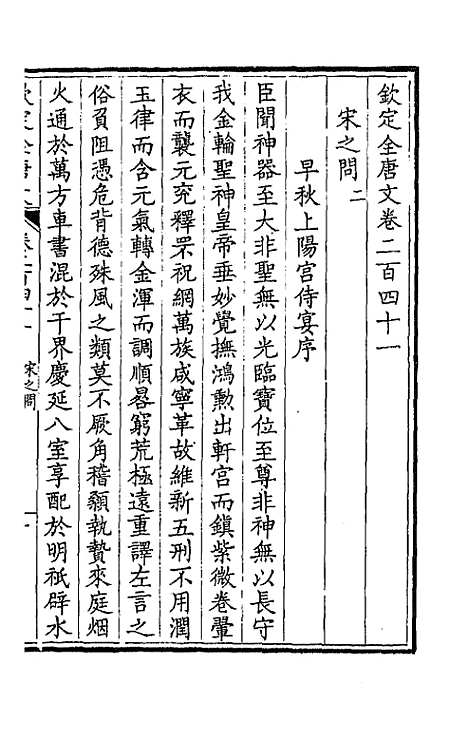 欽定全唐文卷二百四十一
宋之問二
早秋上陽宮侍宴序
臣聞神器至大非聖無以光臨寶位至尊非神無以長守
我金輪聖神皇帝垂妙覺撫鴻勲出軒宮而鎮紫微卷翬
衣而襲元兗釋罘祝網萬族咸寧革故維新五刑不用潤
玉律而含元氣轉金渾而調順晷窮荒極遠重譯左言之
俗負阻憑危背德殊風之類莫不厥角稽顙執贄來庭烟
火通於萬方車書混於千界慶延八室享配於明祇辟水
宋之問
一